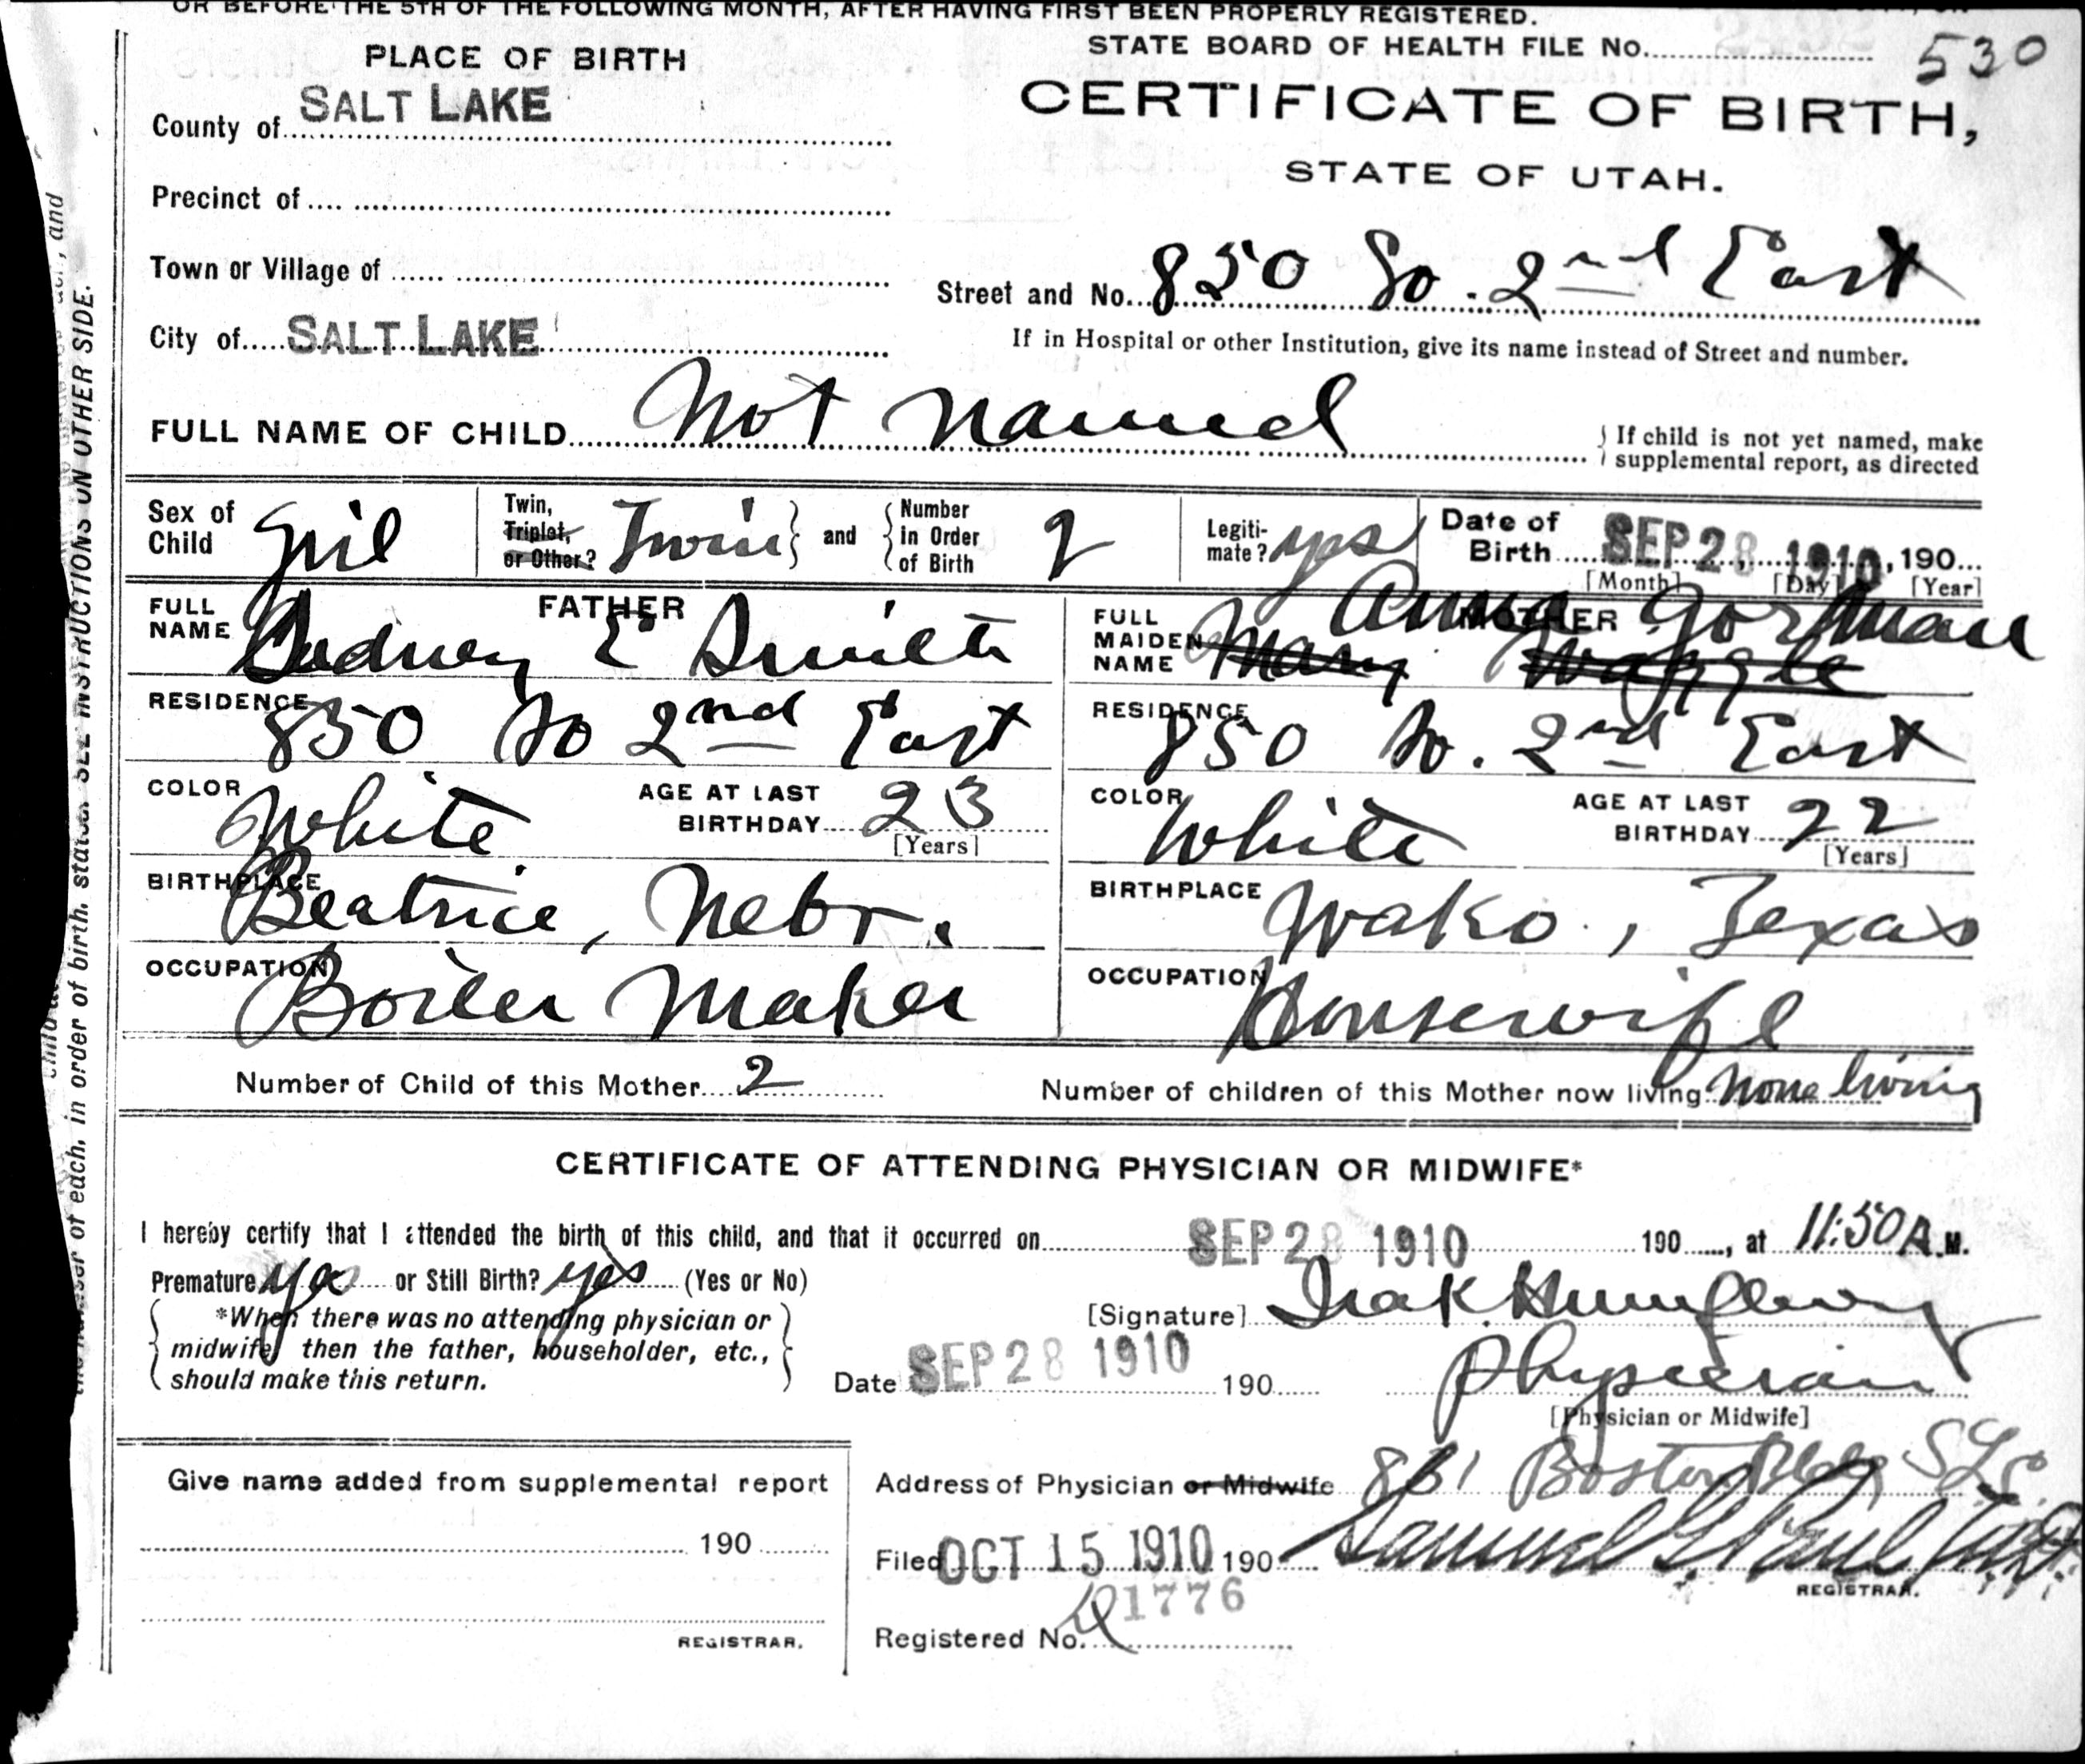 OR BEFORE THE 5TH OF THE FOLLOWING MONTH, AFTER HAVING FIRST BEEN PROPERLY REGISTERED.
PLACE OF BIRTH
STATE BOARD OF HEALTH FILE No. 530
County of SALT LAKE
CERTIFICATE OF BIRTH,
STATE OF UTAH.
Precinct of
Town or Village of
Street and No. 850 So. 2nd East
City of SALT LAKE
If in Hospital or other Institution, give its name instead of Street and number.
FULL NAME OF CHILD Not named
If child is not yet named, make
supplemental report, as directed
Sex of Child Girl
Twin, Triplet, or Other? Twin and Number in Order of Birth 2
Legitimate? yes
Date of Birth SEP 28 1910, 190
[Month] [Day] [Year]
FATHER
FULL NAME Sydney E Smith
MOTHER
FULL MAIDEN NAME Mary Waggle Anna Gorman
RESIDENCE 850 So 2nd East
RESIDENCE 850 So. 2nd East
COLOR White
AGE AT LAST BIRTHDAY 23
[Years]
COLOR White
AGE AT LAST BIRTHDAY 22
[Years]
BIRTHPLACE Beatrice, Nebr.
BIRTHPLACE Wako, Texas
OCCUPATION Boiler Maker
OCCUPATION Housewife
Number of Child of this Mother 2
Number of children of this Mother now living none living
CERTIFICATE OF ATTENDING PHYSICIAN OR MIDWIFE*
I hereby certify that I attended the birth of this child, and that it occurred on SEP 28 1910 190, at 11:50 A.M.
Premature yes or Still Birth? yes (Yes or No)
*When there was no attending physician or
midwife, then the father, householder, etc.,
should make this return.
[Signature] Ira K. Humphrey
Date SEP 28 1910 190
Physician
[Physician or Midwife]
Give name added from supplemental report
190
REGISTRAR.
Address of Physician or Midwife 801 Boston Bldg
Filed OCT 15 1910 190 Samuel G. Paul, M.D.
REGISTRAR.
Registered No. 1776
SEE INSTRUCTIONS ON OTHER SIDE.
of each, in order of birth, stated.